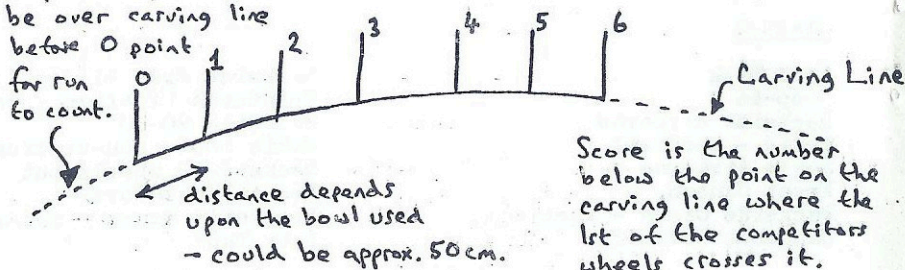 be over carving line
before 0 point
for run
to count.
0
1
2
3
4
5
6
Carving Line
distance depends
upon the bowl used
- could be approx. 50cm.
Score is the number
below the point on the
carving line where the
1st of the competitors
wheels crosses it.